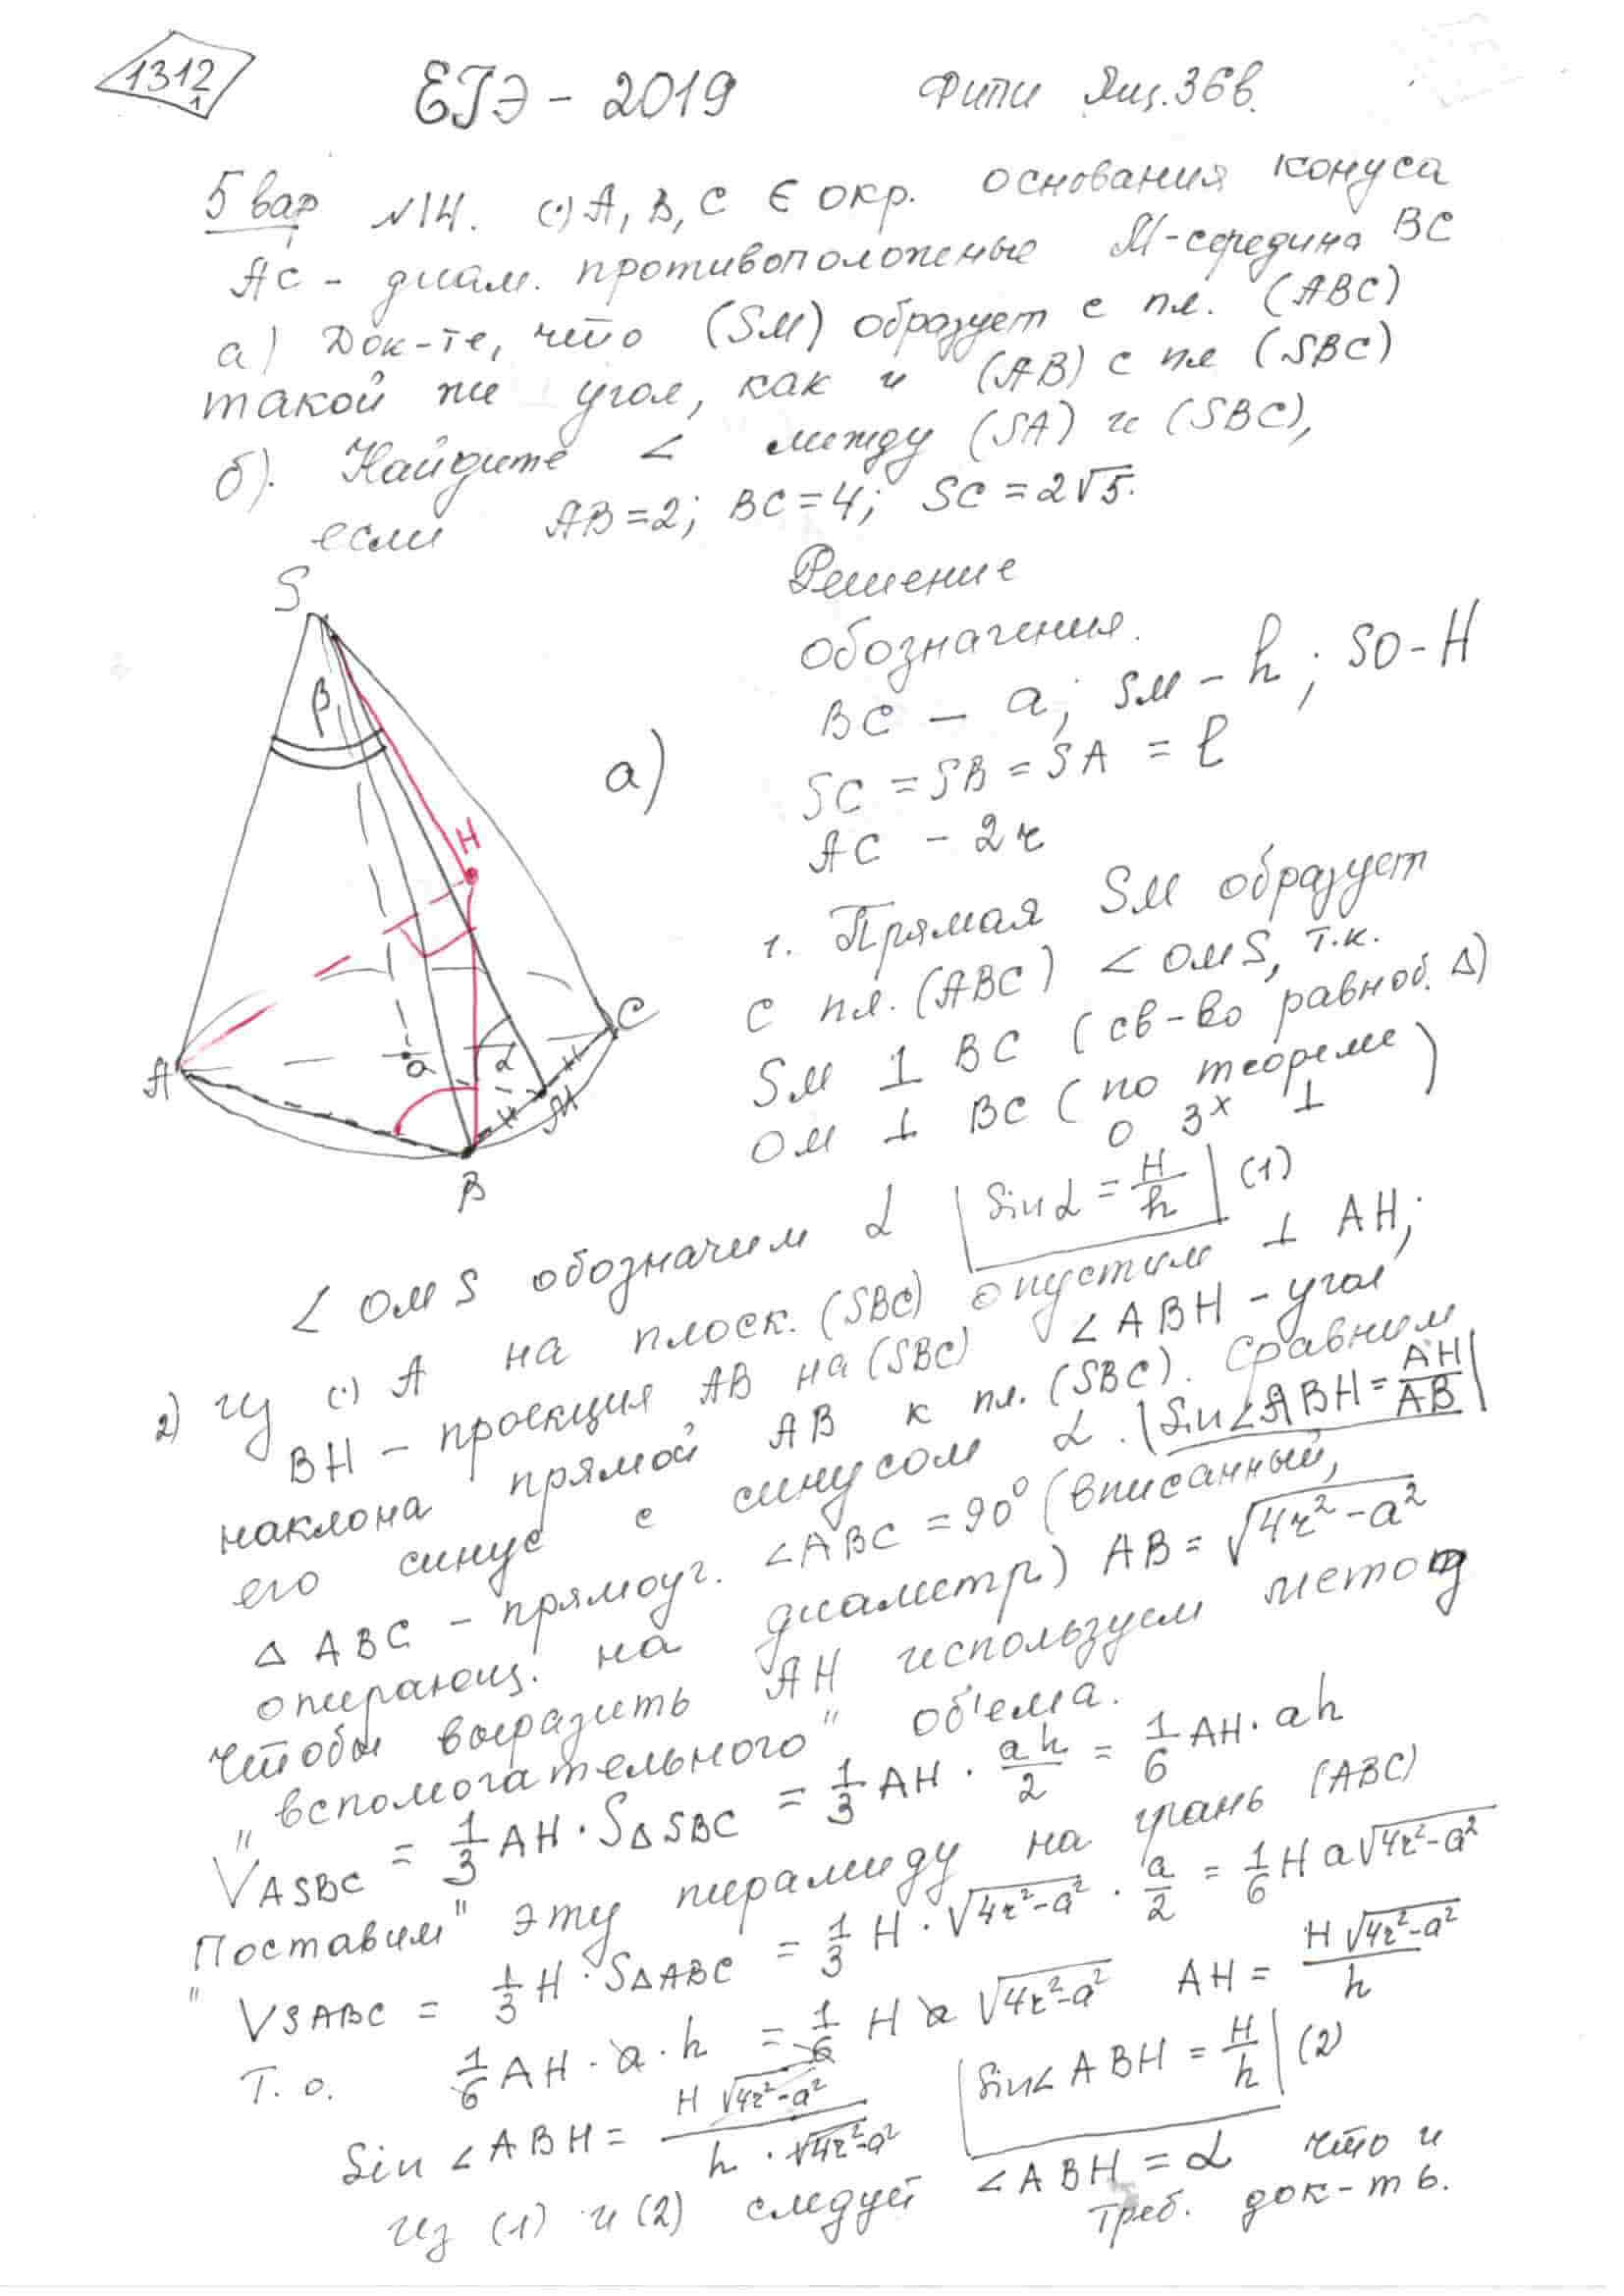 1312
1
ЕГЭ – 2019
Фипи Ящ. 36в.
5 вар №14. (·) A, B, C ∈ окр. основания конуса
AC – диам. противоположные M-середина BC
а) Док-те, что (SM) образует с пл. (ABC)
такой же угол, как и (AB) с пл (SBC)
б). Найдите ∠ между (SA) и (SBC),
если AB=2; BC=4; SC=2√5.
Решение
обозначения.
BC – a; SM – h; SO – H
а)
SC = SB = SA = ℓ
AC – 2r
1. Прямая SM образует
с пл. (ABC) ∠OMS, т.к.
SM ⊥ BC (св-во равноб. Δ)
OM ⊥ BC (по теореме
о 3х ⊥)
S
β
H
A
O
α
C
M
B
∠OMS обозначим α |Sin α = H/h| (1)
2) Из (·) A на плоск. (SBC) опустим ⊥ AH;
BH – проекция AB на (SBC) ∠ABH – угол
наклона прямой AB к пл. (SBC). Сравним
его синус с синусом α. |Sin∠ABH = AH/AB|
Δ ABC – прямоуг. ∠ABC = 90° (вписанный,
опирающ. на диаметр) AB = √4r²-a²
Чтобы выразить AH используем метод
"вспомогательного" об'ема.
V ASBC = 1/3 AH · SΔSBC = 1/3 AH · ah/2 = 1/6 AH · ah
"Поставим" эту пирамиду на грань (ABC)
VSABC = 1/3 H · SΔABC = 1/3 H · √4r²-a² · a/2 = 1/6 H a√4r²-a²
Т. о. 1/6 AH · a · h = 1/6 H a √4r²-a² AH = H √4r²-a²/h
Sin ∠ABH = H √4r²-a²/h · √4r²-a² |Sin∠ABH = H/h| (2)
Из (1) и (2) следует ∠ABH = α что и
треб. док-ть.